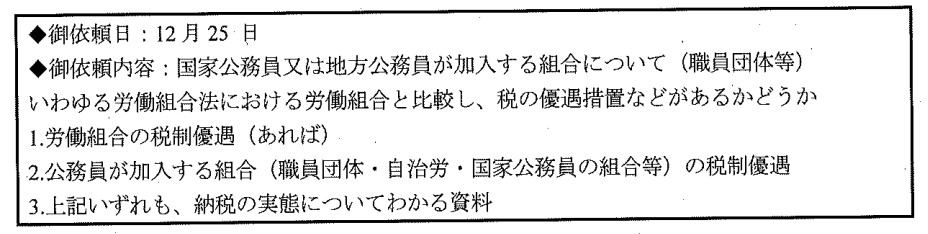 ◆御依頼日：12月25日
◆御依頼内容：国家公務員又は地方公務員が加入する組合について（職員団体等）
いわゆる労働組合法における労働組合と比較し、税の優遇措置などがあるかどうか
1.労働組合の税制優遇（あれば）
2.公務員が加入する組合（職員団体・自治労・国家公務員の組合等）の税制優遇
3.上記いずれも、納税の実態についてわかる資料